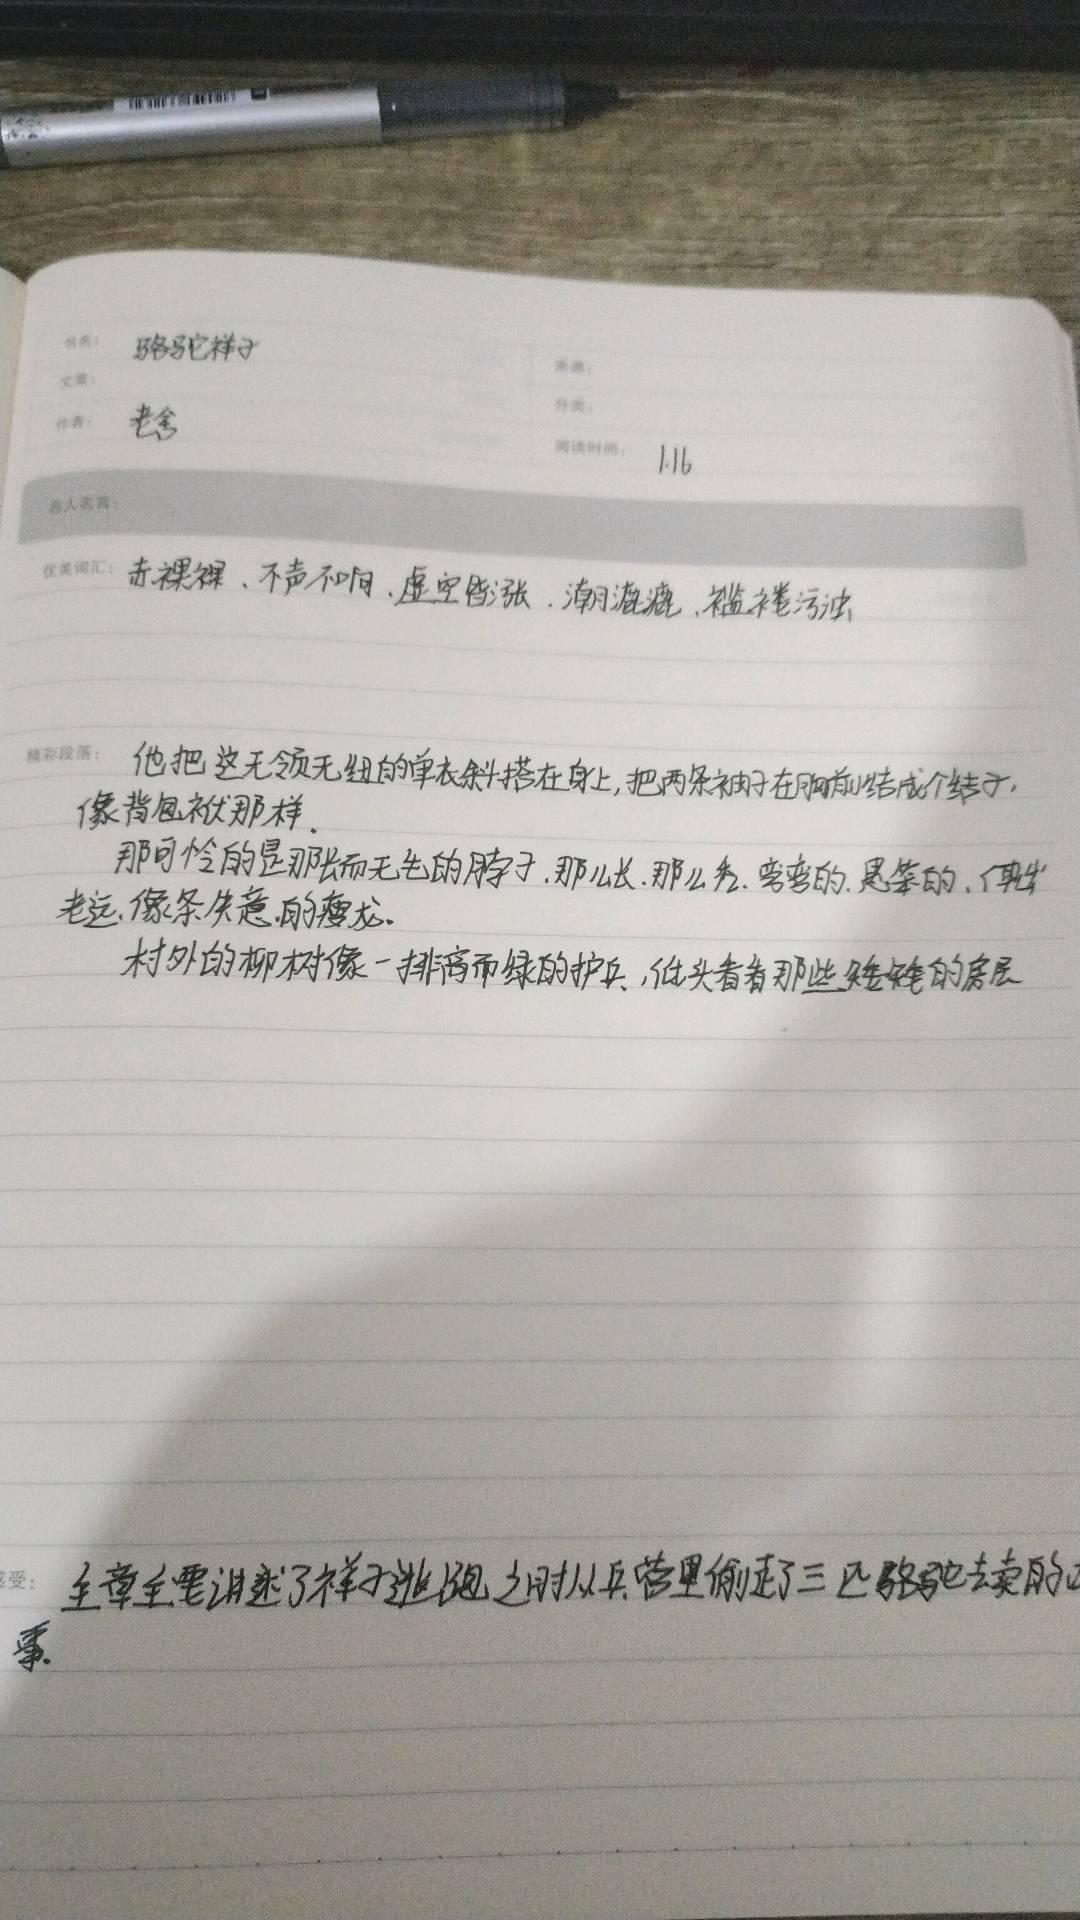 书名: 骆驼祥子
来源:
文章:
分类:
作者: 老舍
阅读时间: 1.16
名人名言:
优美词汇: 赤裸裸、不声不响、虚空昏涨、潮漉漉、褴褛污浊
精彩段落: 他把这无领无纽的单衣斜搭在身上,把两条袖子在胸前结成个结子,
像背包袱那样.
那可怜的是那长而无毛的脖子,那么长,那么秃,弯弯的,愚笨的,伸出
老远,像条失意的瘦龙.
村外的柳树像一排高而绿的护兵,低头看着那些矮矮的房屋
感受: 主章主要讲述了祥子逃跑之时从兵营里偷走了三匹骆驼去卖的
事.